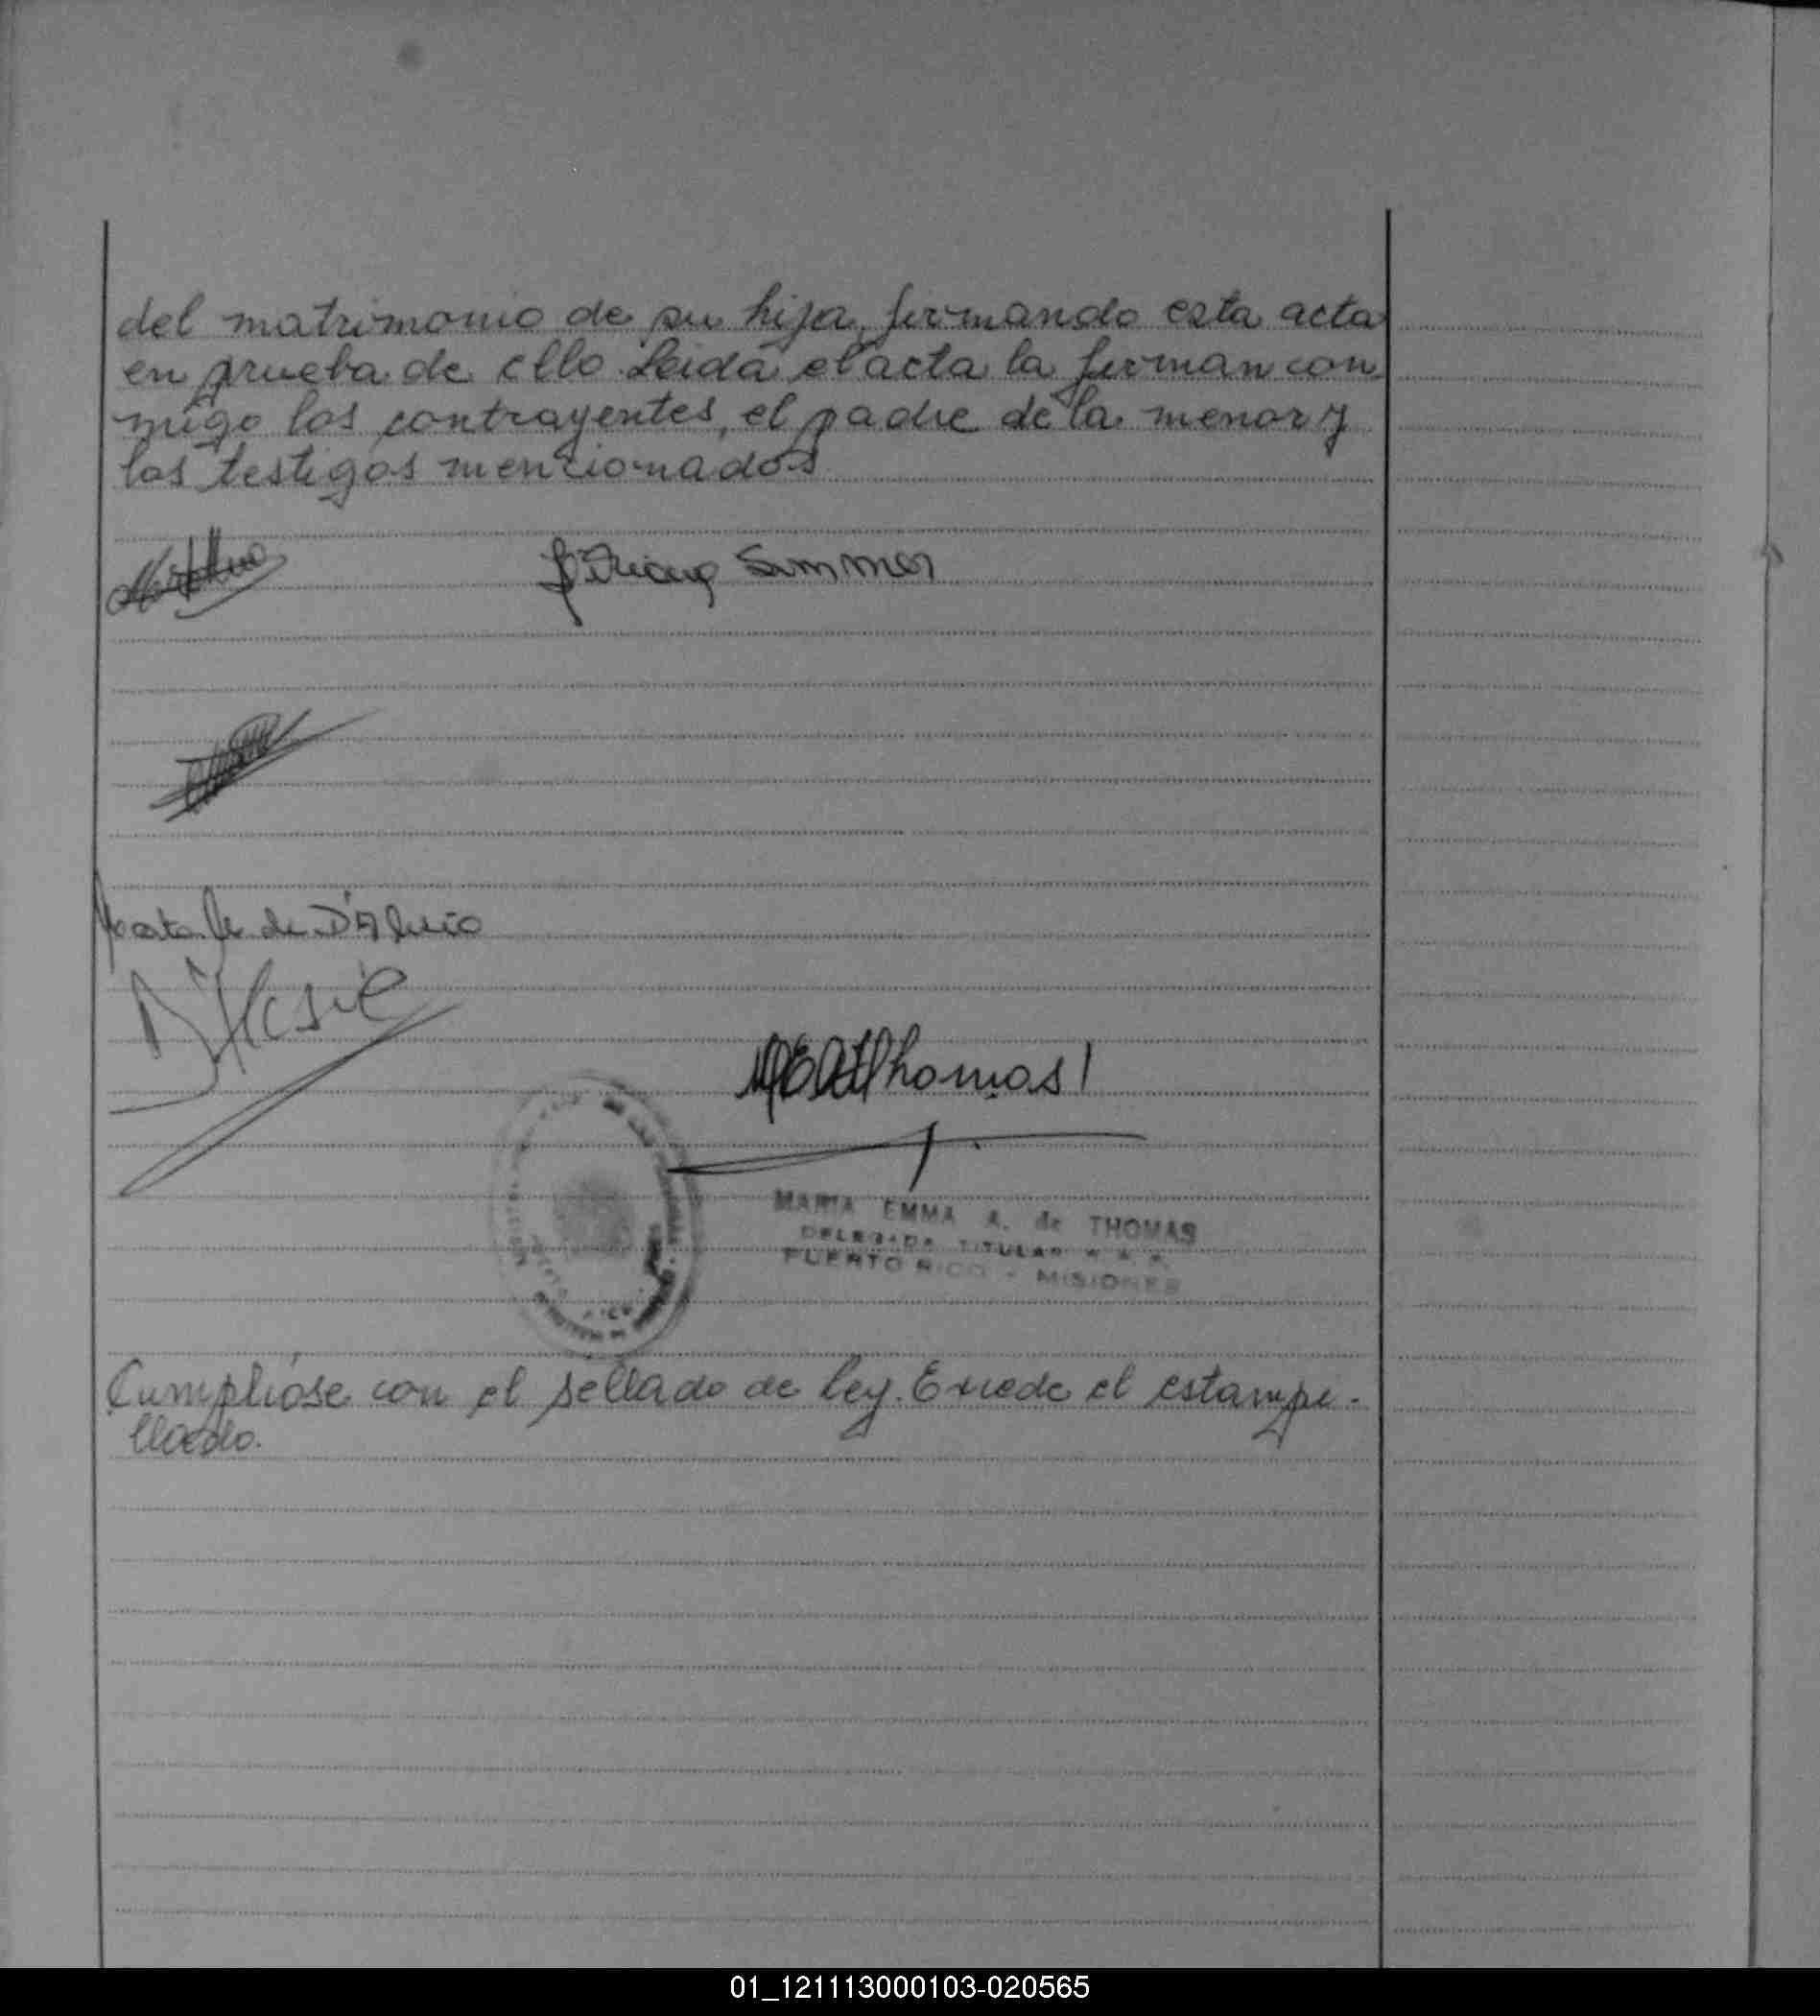 del matrimonio de su hija, firmando esta acta
en prueba de ello. Leida el acta la firman con
migo los contrayentes, el padre de la menor y
los testigos mencionados
Sommer
de D'Alesio
D'Alesio
MEA de Thomas
MARIA EMMA A. de THOMAS
DELEGADA TITULAR
PUERTO RICO - MISIONES
Cumplióse con el sellado de ley. Excede el estampi-
llado.
01_121113000103-020565